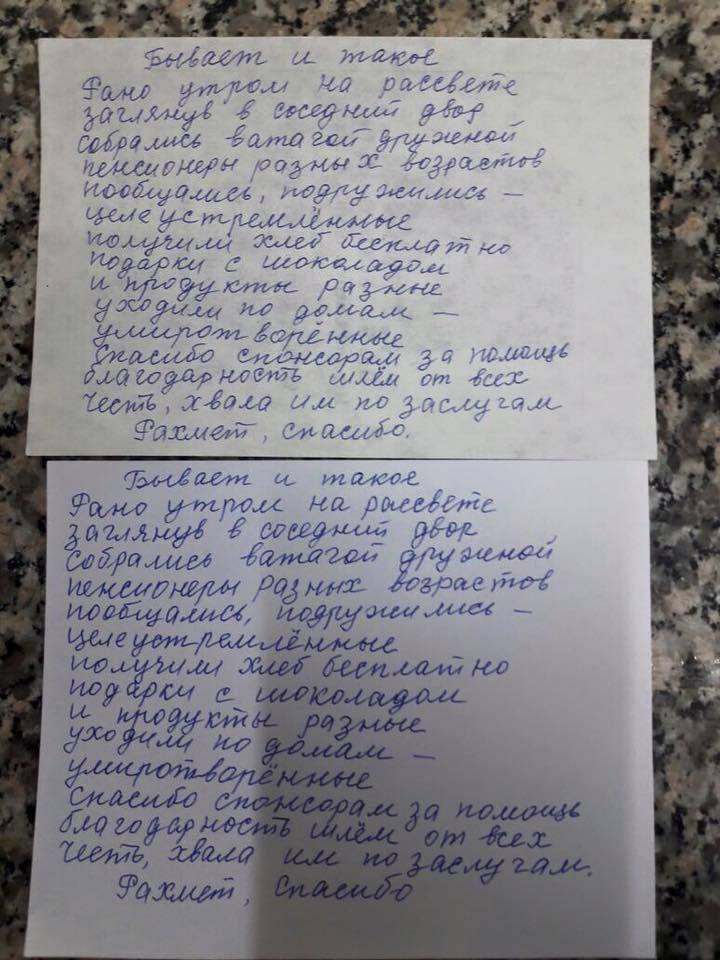 Бывает и такое
Рано утром на рассвете
заглянув в соседний двор
собрались ватагой дружной
пенсионеры разных возрастов
пообщались, подружились –
целеустремлённые
получили хлеб бесплатно
подарки с шоколадом
и продукты разные
уходили по домам –
умиротворённые
спасибо спонсорам за помощь
благодарность шлём от всех
Честь, хвала им по заслугам
Рахмет, спасибо.
Бывает и такое
Рано утром на рассвете
заглянув в соседний двор
собрались ватагой дружной
пенсионеры разных возрастов
пообщались, подружились –
целеустремлённые
получили хлеб бесплатно
подарки с шоколадом
и продукты разные
уходили по домам –
умиротворённые
спасибо спонсорам за помощь
благодарность шлём от всех
Честь, хвала им по заслугам.
Рахмет, спасибо